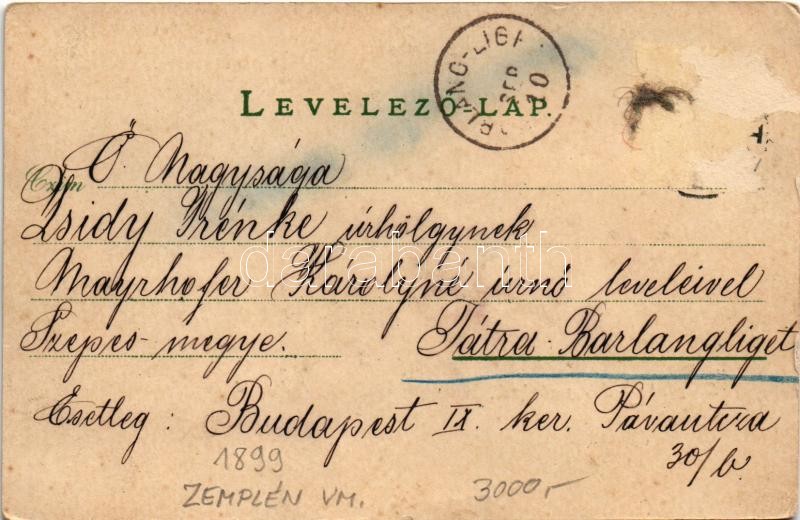 LEVELEZŐ-LAP.
BARLANG-LIGET
SEP
10
Ő Nagysága
Czím
Zsidy Irénke úrhölgynek
Mayrhofer Károlyné úrnő leveleivel
Szepes-megye. Tátra-Barlangliget
Esetleg: Budapest IX. ker. Pávautcza
30/b.
1899
ZEMPLÉN VM.
3000,-
darabanth